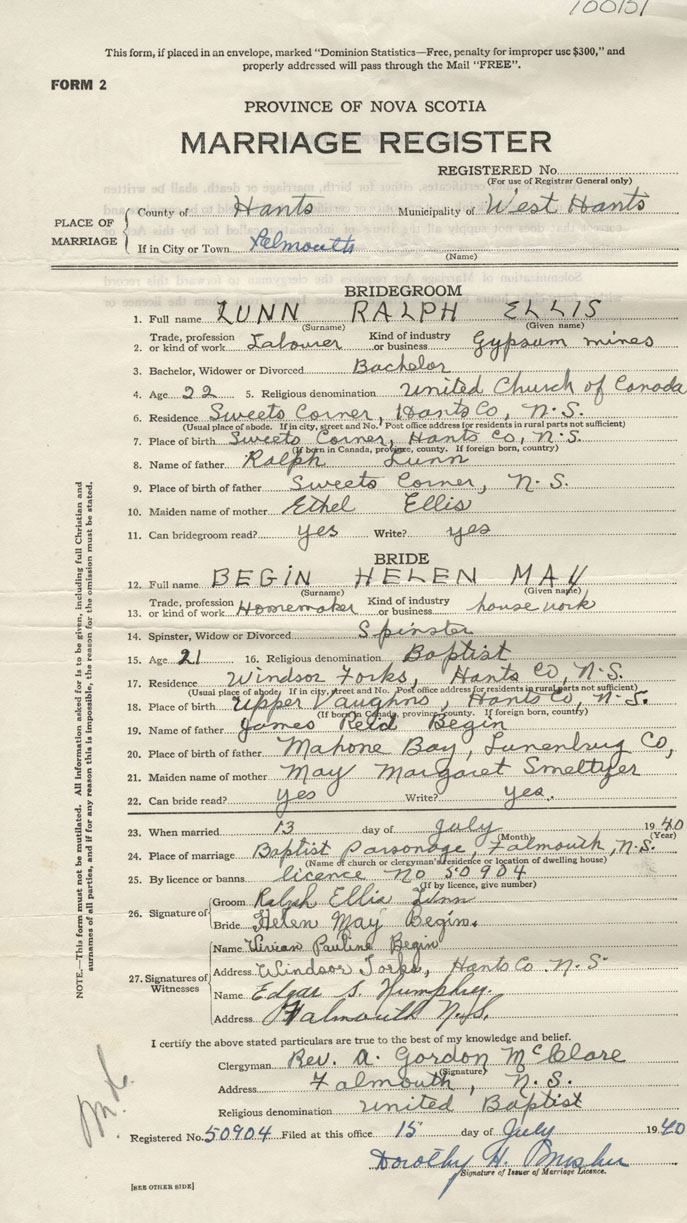 100151
This form, if placed in an envelope, marked "Dominion Statistics—Free, penalty for improper use $300," and
properly addressed will pass through the Mail "FREE".
FORM 2
PROVINCE OF NOVA SCOTIA
MARRIAGE REGISTER
REGISTERED No.
(For use of Registrar General only)
PLACE OF MARRIAGE
County of Hants Municipality of West Hants
If in City or Town Falmouth
(Name)
BRIDEGROOM
1. Full name LUNN RALPH ELLIS
(Surname) (Given name)
2. Trade, profession or kind of work Labourer Kind of industry or business Gypsum mines
3. Bachelor, Widower or Divorced Bachelor
4. Age 22 5. Religious denomination United Church of Canada
6. Residence Sweets Corner, Hants Co, N.S.
(Usual place of abode. If in city, street and No. Post office address for residents in rural parts not sufficient)
7. Place of birth Sweets Corner, Hants Co, N.S.
(If born in Canada, province, county. If foreign born, country)
8. Name of father Ralph Lunn
9. Place of birth of father Sweets Corner, N.S.
10. Maiden name of mother Ethel Ellis
11. Can bridegroom read? yes Write? yes
BRIDE
12. Full name BEGIN HELEN MAY
(Surname) (Given name)
13. Trade, profession or kind of work Homemaker Kind of industry or business house work
14. Spinster, Widow or Divorced Spinster
15. Age 21 16. Religious denomination Baptist
17. Residence Windsor Forks, Hants Co, N.S.
(Usual place of abode. If in city, street and No. Post office address for residents in rural parts not sufficient)
18. Place of birth Upper Vaughns, Hants Co, N.S.
(If born in Canada, province, county. If foreign born, country)
19. Name of father James Reid Begin
20. Place of birth of father Mahone Bay, Lunenburg Co,
21. Maiden name of mother May Margaret Smeltzer
22. Can bride read? yes Write? yes.
23. When married 13 day of July 1940
(Month) (Year)
24. Place of marriage Baptist Parsonage, Falmouth, N.S.
(Name of church or clergyman's residence or location of dwelling house)
25. By licence or banns licence No 50904
(If by licence, give number)
26. Signature of
Groom Ralph Ellis Lunn
Bride Helen May Begin.
27. Signatures of Witnesses
Name Vivian Pauline Begin
Address Windsor Forks, Hants Co. N.S.
Name Edgar S. Humphrey.
Address Falmouth N.S.
I certify the above stated particulars are true to the best of my knowledge and belief.
Clergyman Rev. A. Gordon McClare
(Signature)
Address Falmouth, N.S.
Religious denomination United Baptist
Registered No. 50904 Filed at this office 15 day of July 1940
Dorothy H.
Signature of Issuer of Marriage Licence.
[SEE OTHER SIDE]
NOTE.—This form must not be mutilated. All information asked for is to be given, including full Christian and
surnames of all parties, and if for any reason this is impossible, the reason for the omission must be stated.